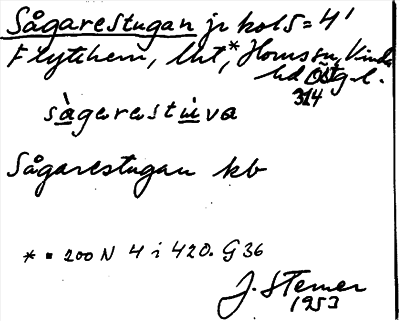 Sågarestugan jr kol5 = 4'
Flytthem, lht,* Hornssn, Vinds
hd Östg. l.
314
sàgarastùva
Sågarestugan kb
* = 200 N 4 i 420. G 36
J. Sterner
1953